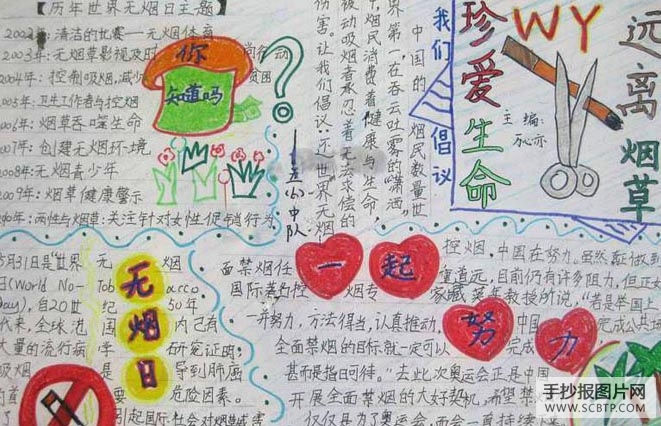 【历年世界无烟日主题】
2002年:清洁的比赛——无烟体育
2003年:无烟草影视及时
行动
2004年:控制吸烟,减少
贫困
2005年:卫生工作者与控烟
2006年:烟草吞噬生命
2007年:创建无烟环境
2008年:无烟青少年
2009年:烟草健康警示
2010年:两性与烟草:关注针对女性
促销行为
你
知道吗
?
我们倡议
中国的
烟民数量世
界第一,在吞云吐雾的“潇洒”
中,烟民消费着健康与生命,
被动吸烟者承忍着无法求偿的
伤害。让我们倡议:还世界无烟
中队
珍爱生命
WY
远离烟草
主编:
5月31日是“世界
无烟
日(World No-
Tobacco
Day),自20世
纪50年
代来,全球范
围内已有
大量的流行病
学研究证明,
吸烟
是导致肺癌
的首
要危险因素。
引起国际社会对烟草危害
无烟日
一起努力
控烟,中国在努力。虽然
面禁烟任
重道远,目前仍有许多阻力,但正如
国际著名控烟专家
教授所说,“若是举国上
一并努力,方法得当,认真推动,中国
完成公共场
全面禁烟的目标就一定可以
完成
甚而是指日可待。”去此次奥运会正是中国
开展全面禁烟的大好契机,希望禁烟
仅仅是为了奥运会,而会一直持续下
手抄报图片网
WWW.SCBTP.COM